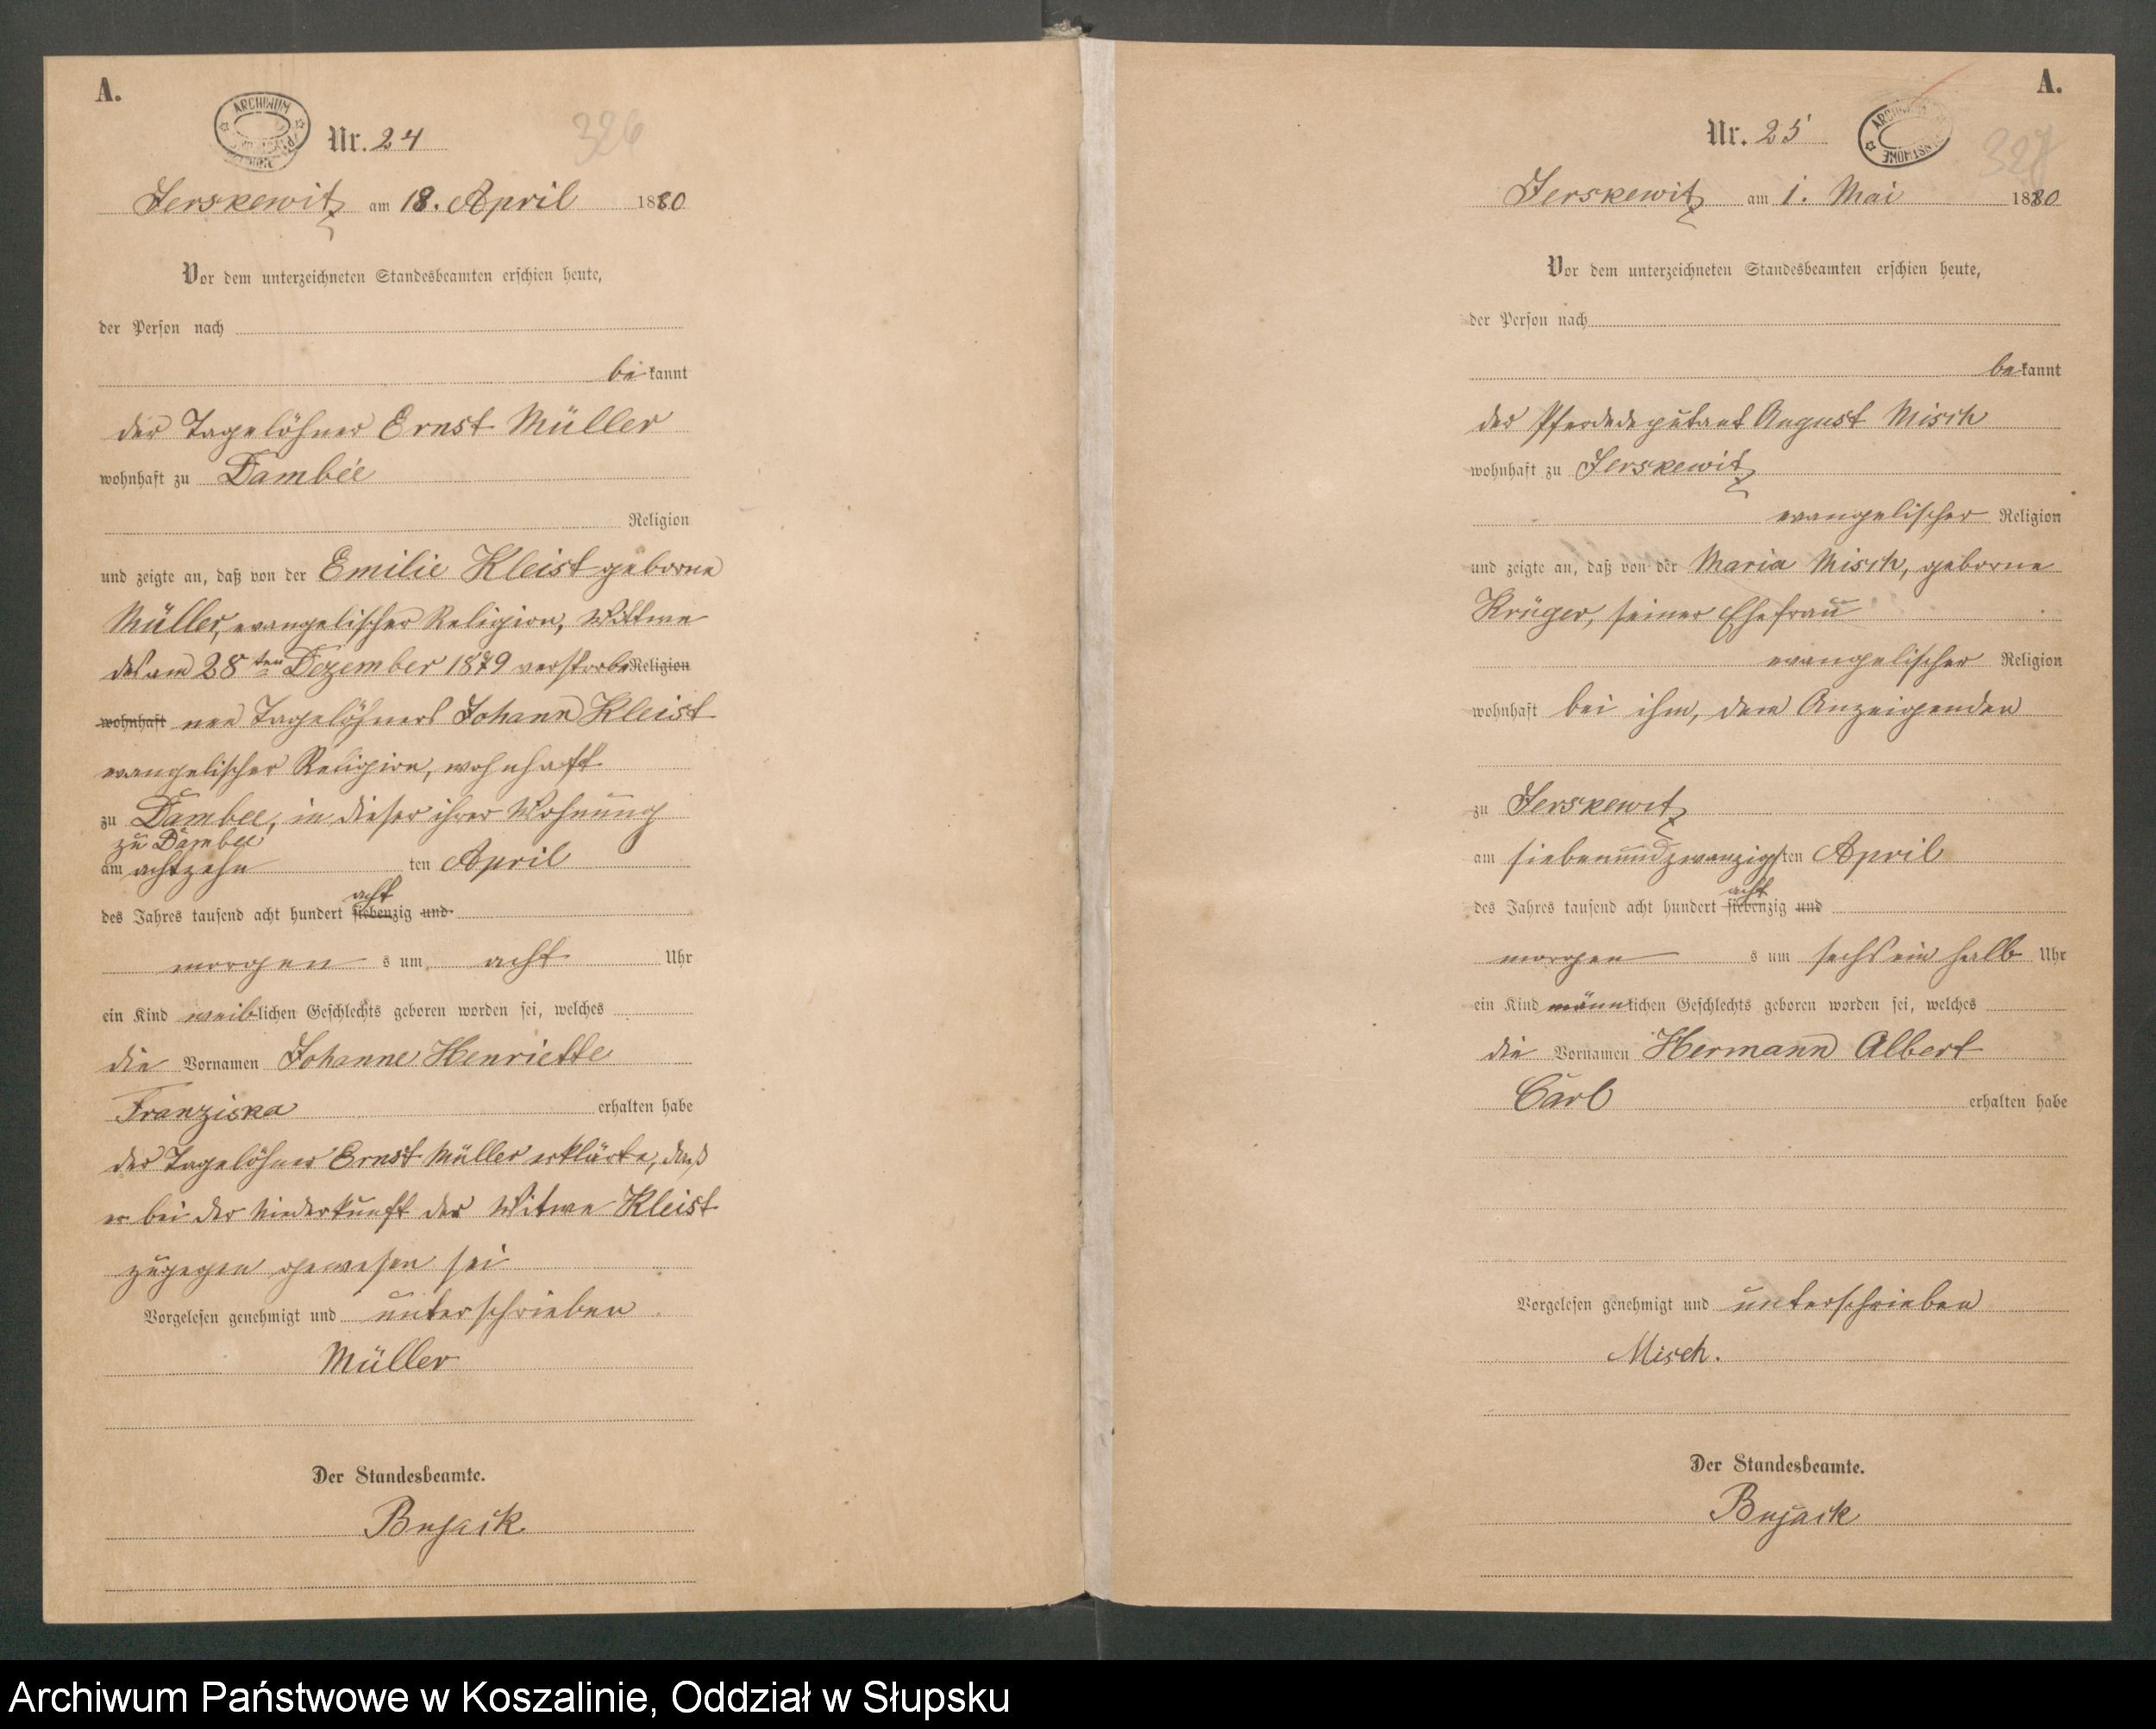 A.
ARCHIWUM
Nr. 24
326
Jerskewitz am 18. April 1880
Vor dem unterzeichneten Standesbeamten erschien heute,
der Person nach
bekannt
der Tagelöhner Ernst Müller
wohnhaft zu Dambee
Religion
und zeigte an, daß von der Emilie Kleist geborne
Müller, evangelischer Religion, Wittwe
des am 28ten Dezember 1879 verstorbe Religion
wohnhaft nen Tagelöhners Johann Kleist
evangelischer Religion, wohnhaft
zu Dambee, in dieser ihrer Wohnung
zu Dambee
am achtzehn ten April
acht
des Jahres tausend acht hundert siebenzig und
morgen s um acht Uhr
ein Kind weiblichen Geschlechts geboren worden sei, welches
die Vornamen Johanne Henriette
Franziska erhalten habe
der Tagelöhner Ernst Müller erklärte, daß
er bei der Niederkunft der Witwe Kleist
zugegen gewesen sei
Vorgelesen genehmigt und unterschrieben
Müller
Der Standesbeamte.
Bujack
A.
Nr. 25
327
Jerskewitz am 1. Mai 1880
Vor dem unterzeichneten Standesbeamten erschien heute,
der Person nach
bekannt
der Pferdedeputant August Misch
wohnhaft zu Jerskewitz
evangelischer Religion
und zeigte an, daß von der Maria Misch, geborne
Krüger, seiner Ehefrau
evangelischer Religion
wohnhaft bei ihm, dem Anzeigenden
zu Jerskewitz
am siebenundzwanzigsten April
acht
des Jahres tausend acht hundert siebenzig und
morgen s um sechs ein halb Uhr
ein Kind männlichen Geschlechts geboren worden sei, welches
die Vornamen Hermann Albert
Carl erhalten habe
Vorgelesen genehmigt und unterschrieben
Misch.
Der Standesbeamte.
Bujack
Archiwum Państwowe w Koszalinie, Oddział w Słupsku